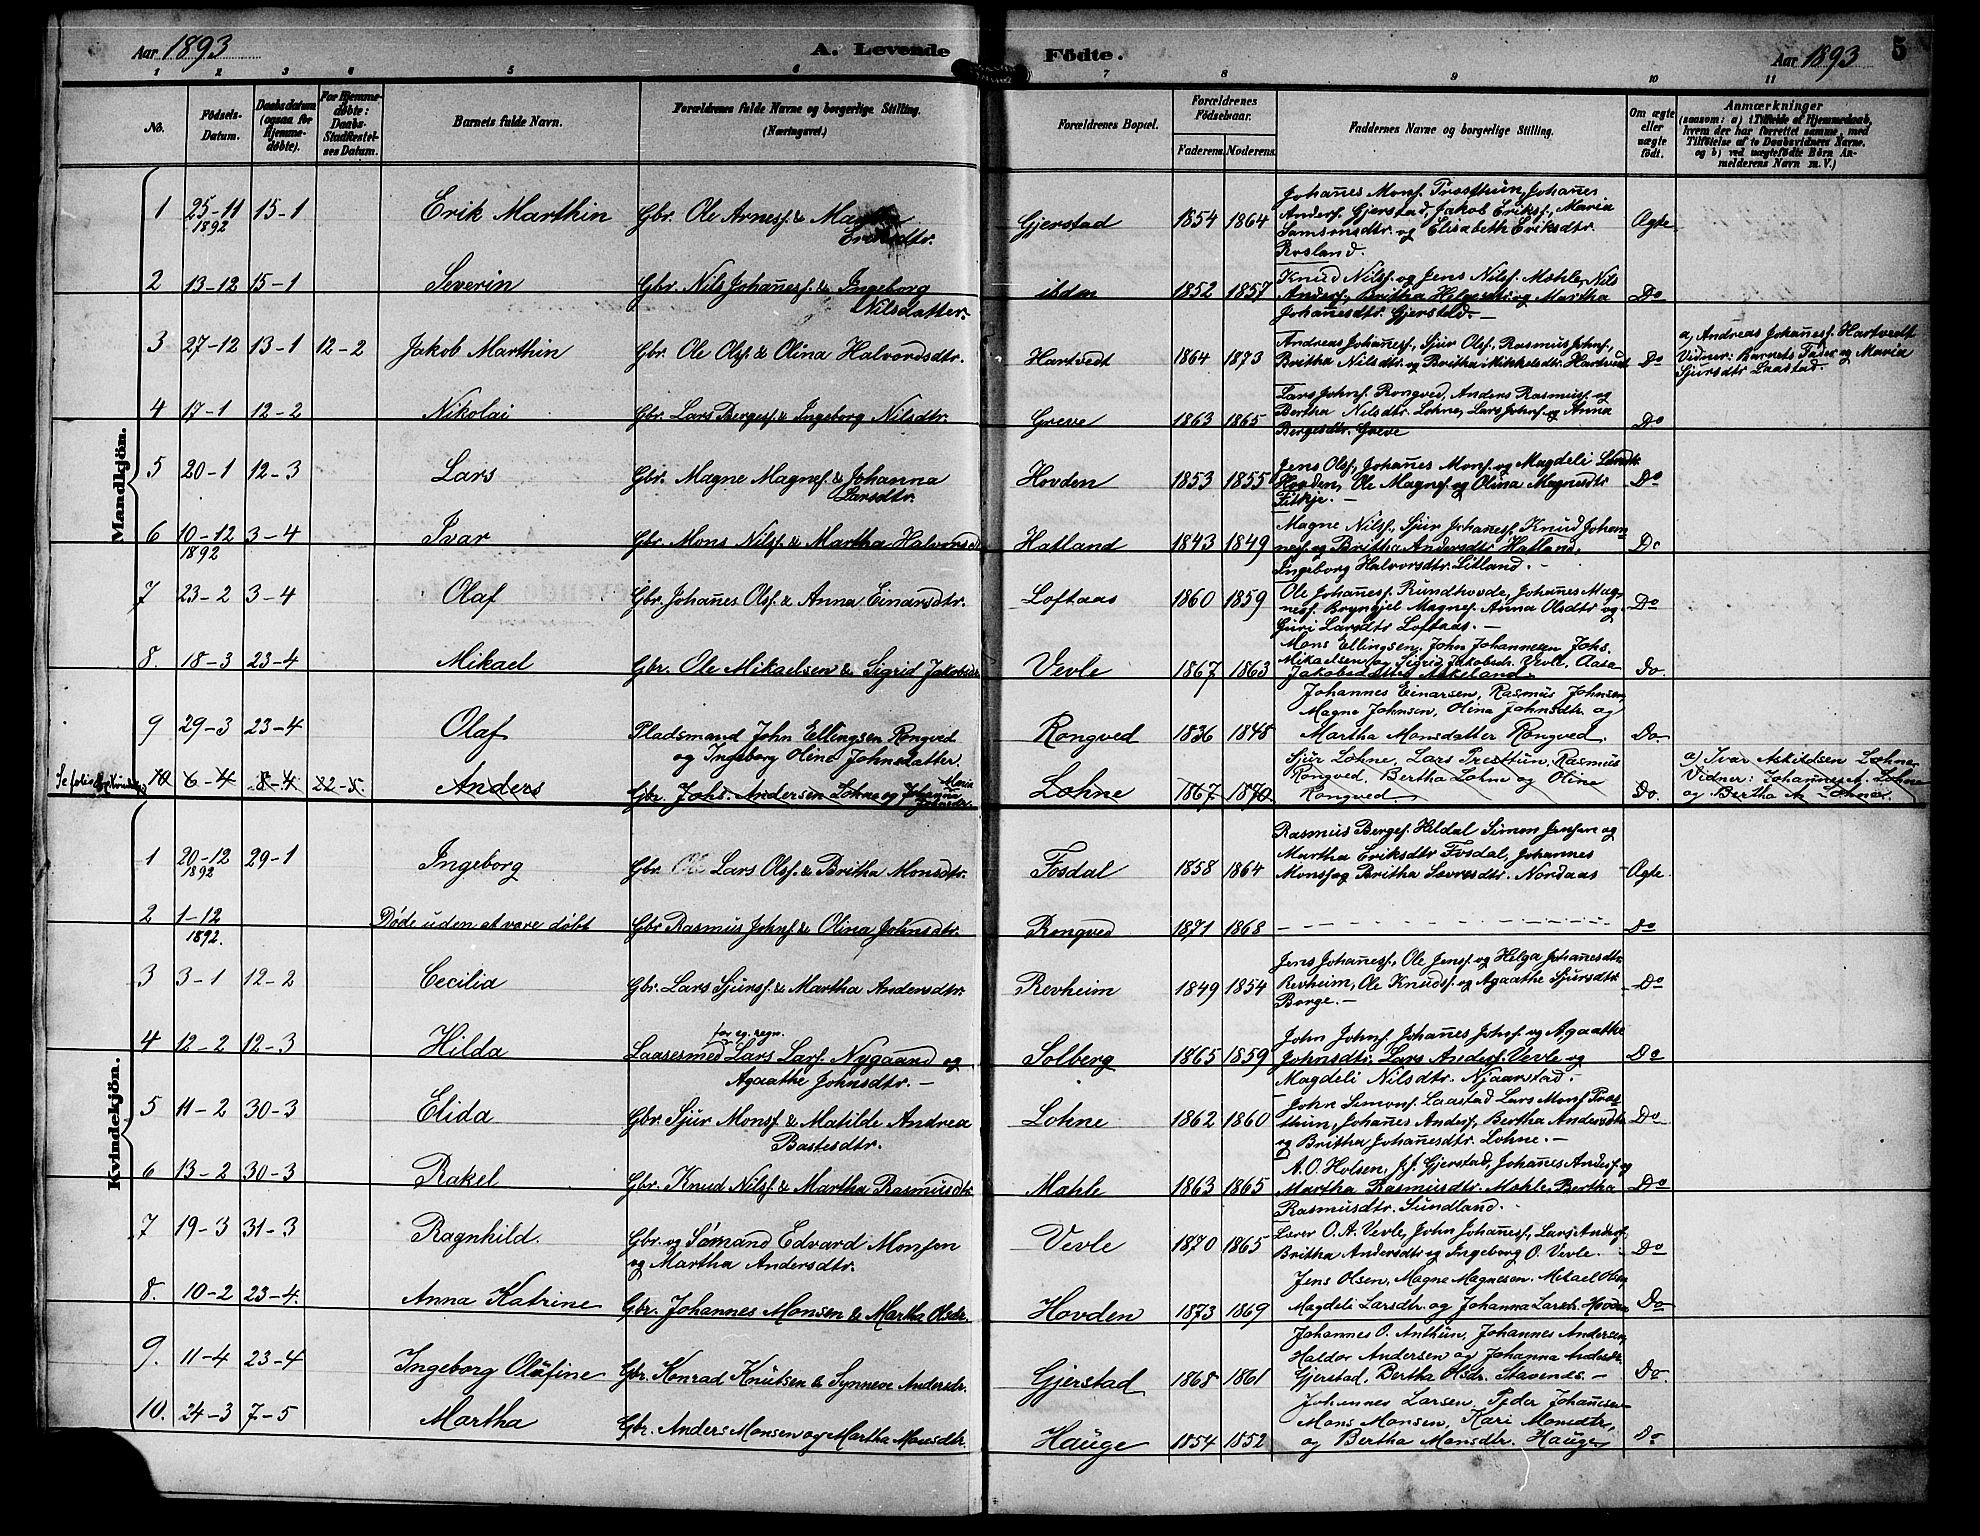 Aar 1893 A. Levende Födte. Aar 1893 5
1 2 3 6 5 6 7 8 9 10 11
No. Födsels-Datum. Daabsdatum (ogsaa for Hjemme-døbte). For Hjemme-døbte: Daabs-Stadfæstel-ses Datum. Barnets fulde Navn. Forældrenes fulde Navne og borgerlige Stilling. (Næringsvei.) Forældrenes Bopæl. Forældrenes Födselsaar. Faderens. Moderens. Faddernes Navne og borgerlige Stilling. Om ægte eller uægte födt. Anmærkninger (saasom: a) i Tilfælde af Hjemmedaab, hvem der har forrettet samme, med Tilföielse af to Daabsvidners Navne, og b) ved uægtefödte Börn An-melderens Navn m. V.)
Mandkjön.
1 25-11 1892 15-1 Erik Marthin Gbr. Ole Arnesf. & Eriksdtr. Gjerstad 1854 1864 Johañes Monsf. Trosthun, Johañes Andersf. Gjerstad, Jakob Eriksf., Maria Samsonsdtr. og Elisabeth Eriksdtr. Rosland. Ægte
2 13-12 15-1 Severin Gbr. Nils Johañesf. & Ingeborg Nilsdatter. ibdm 1852 1857 Knud Nilsf. og Jens Nilsf. Mohle, Nils Andersf., Britha og Martha Johañesdtr. Gjerstad. — Do
3 27-12 13-1 12-2 Jakob Marthin Gbr. Ole Olsf. & Olina Halvordsdtr. Hartvedt 1864 1873 Andreas Johañesf., Sjur Olsf., Rasmus Johnsf., Britha Nilsdtr. og Britha Mikkelsdtr. Hartvedt Do a, Andreas Johañesf. Hartvedt Vidner: Barnets Fader og Maria Sjursdtr Laastad.
4 17-1 12-2 Nikolai Gbr. Lars Bergesf. & Ingeborg Nilsdtr. Greve 1863 1865 Lars Johnsf. Rongved, Anders Rasmusf. og Bertha Nilsdtr. Lohne, Lars Johnsf. og Anna Bergesdtr. Greve Do
5 20-1 12-3 Lars Gbr. Magne Magnesf. & Johanna Larsdtr. Hovden 1853 1855 Jens Olsf., Johañes Monsf. og Magdeli Hovden, Ole Magnesf. og Olina Magnesdtr. — Do
6 10-12 1892 3-4 Ivar Gbr. Mons Nilsf. & Martha Halvorsdtr. Hatland 1843 1849 Magne Nilsf., Sjur Johañesf., Knud Johannesf. og Britha Andersdtr. Hatland, Ingeborg Halvorsdtr. Litland. — Do
7 23-2 3-4 Olaf Gbr. Johañes Olsf. & Anna Einarsdtr. Loftaas 1860 1859 Ole Johañesf. Rundhovde, Johañes Magnesf. Bryngjel Magnesf. Anna Olsdtr. og Guri Larsdtr Loftaas. — Do
8. 18-3 23-4 Mikael Gbr. Ole Mikaelsen & Sigrid Jakobsdr. Vevle 1867 1863 Mons Ellingsen, John Johannesen, Johs. Mikaelsen og Sigrid Jakobsdr. Vevle, Aasa Jakobsdatter Askeland. Do.
9 29-3 23-4 Olaf Pladsmand John Ellingsen Rongved og Ingeborg Olina Johnsdatter. Rongved 1836 1848 Johannes Einarsen, Rasmus Johnsen, Magne Johnsen, Olina Johnsdtr. og Martha Monsdatter Rongved. Do.
10 6-4 8-4 22-5 Anders Gbr. Johs. Andersen Lohne og Johanna Maria Lohne 1867 1870 Sjur Lohne, Lars Trosthun, Rasmus Rongved, Bertha Lohne og Oline Rongved. Do. a) Ivar Askildsen Lohne Vidner: Johannes A. Lohne og Bertha A. Lohne.
Kvindekjön.
1 20-12 1892 29-1 Ingeborg Gbr. Lars Olsf. & Britha Monsdtr. Fosdal 1858 1864 Rasmus Bergesf. Hildal Simon Jensen og Martha Eriksdtr Fosdal, Johannes Monsf og Britha Nordaas Ægte.
2 1-12 1892. Døde uden at vare døbt Gbr Rasmus Johnsf. & Olina Johnsdtr. Rongved 1871 1868 — Do
3 3-1 12-2 Cecilia Gbr. Lars Sjursf. & Martha Andersdtr. Revheim 1849 1854 Jens Johañesf., Ole Jensf. og Helga Johañesdtr. Revheim, Ole Knudsf. og Agaathe Sjursdtr. Borge. — Do
4 12-2 12-3 Hilda for eg. regn. Lars Larsf. Nygaard og Agaathe Johnsdtr. — Solberg 1865 1859 John Johnsf., Johañes Johnsf. og Agaathe Johnsdtr., Lars Andersf. Vevle og Magdeli Nilsdtr. Njaarstad. Do
5 11-2 30-3 Elida Gbr. Sjur Monsf. & Matilde Andrea Bastesdtr. Lohne 1862 1860 John Simonsf. Laastad Lars Monsf. Trosthun, Johañes Andersf., Bertha Andersdtr og Britha Johañesdtr. Lohne. — Do
6 13-2 30-3 Rakel Gbr. Knud Nilsf. & Martha Rasmusdtr. Mohle 1863 1865 A. O. Holsen, J. J. Gjerstad, Johañes Andersf. og Martha Rasmusdtr. Mohle, Bertha Rasmusdtr. Sundland. Do
7 19-3 31-3 Ragnhild. Gbr. og Sømand Edvard Monsen og Martha Andersdtr. Vevle 1870 1865 Lærer O. A. Vevle, John Johañesf., Lars Andersf., Britha Andersdtr og Ingeborg O. Vevle. — Do
8. 10-2 23-4. Anna Katrine Gbr. Johannes Monsen & Martha Olsdr. Hovden 1873 1869 Jens Olsen, Magne Magnesen. Mikael Olsen Magdeli Larsdtr. og Johanna Larsdr. Hovden Do
9. 11-4 23-4 Ingeborg Olüfine Gbr. Konrad Knütsen & Synneve Andersdr. Gjerstad 1868 1861 Johannes O. Anthün, Johannes Andersen, Haldor Andersen og Johanna Andersdr. Gjerstad, Bertha Olsdr. Stavenes. — Do.
10. 24-3 7-5 Martha Gbr. Anders Monsen og Martha Monsdtr. Haüge 1854 1852 Johennes Larsen, Peder Johansen Mons Monsen, Kari Monsdtr., og Bertha Monsdtr. Haüge Do